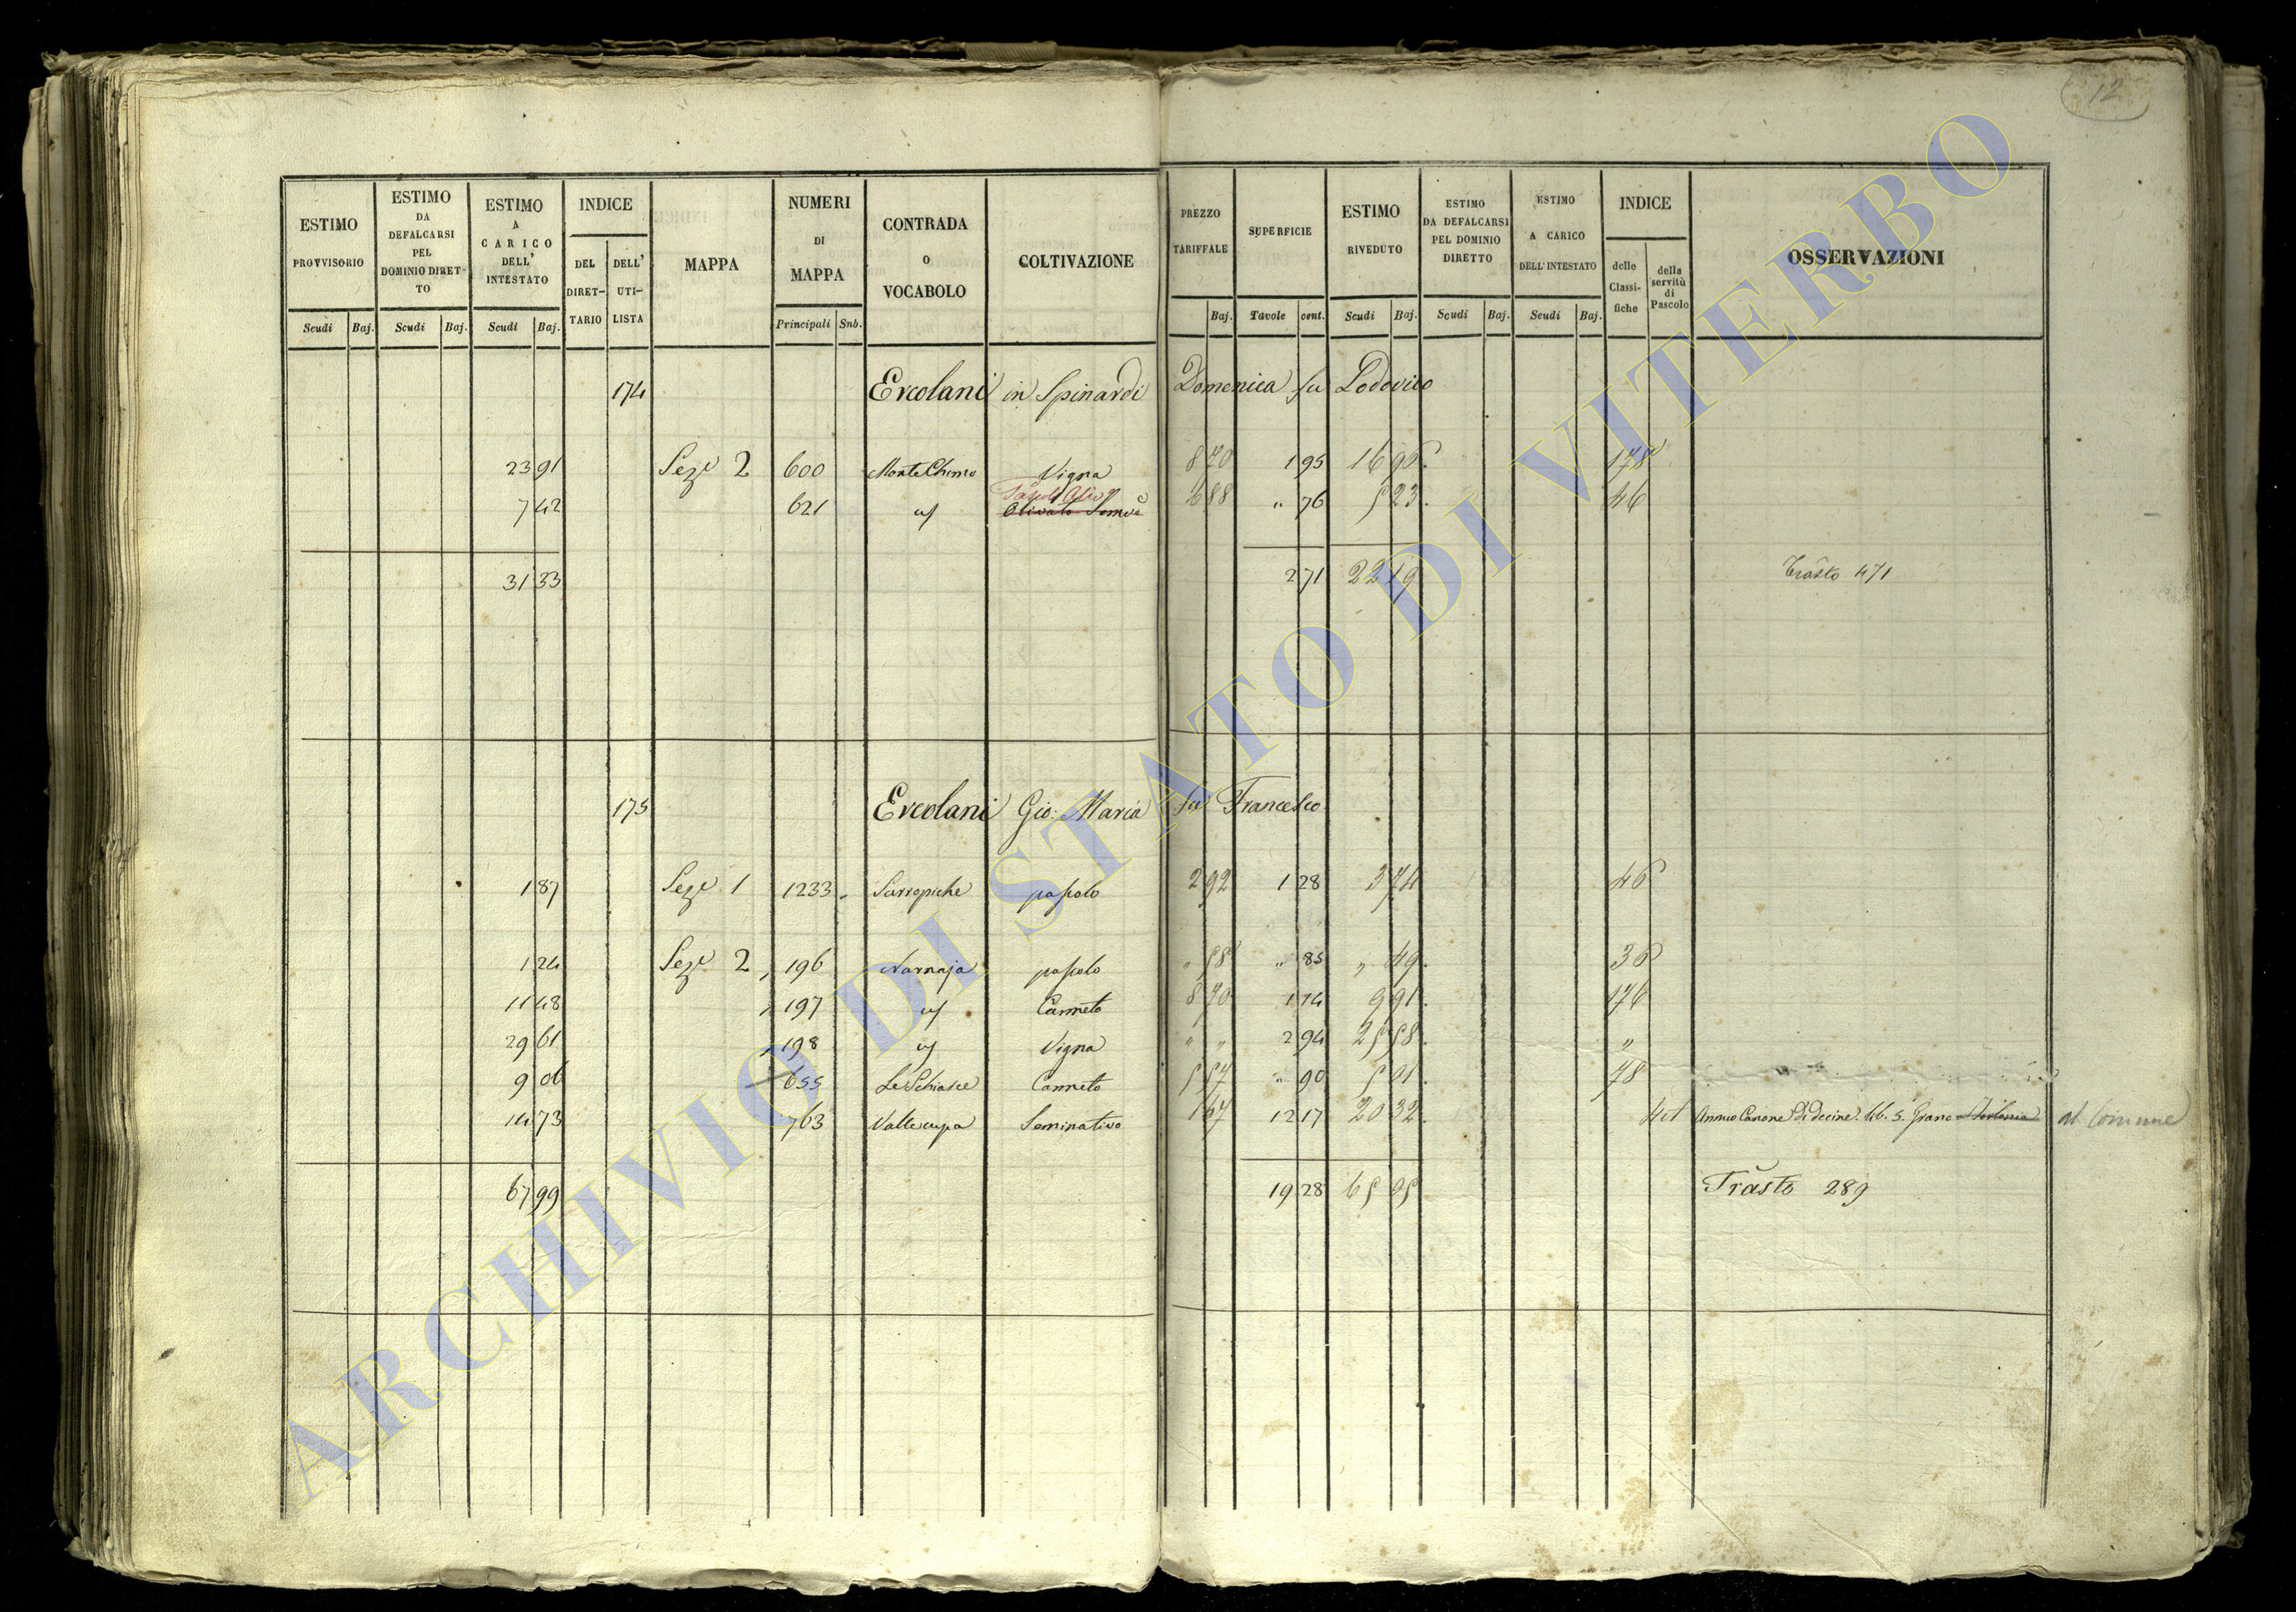 12
ESTIMO PROVVISORIO
ESTIMO DA DEFALCARSI PEL DOMINIO DIRETTO
ESTIMO A CARICO DELL' INTESTATO
INDICE
DEL DIRETTARIO
DELL' UTILISTA
MAPPA
NUMERI DI MAPPA
CONTRADA O VOCABOLO
COLTIVAZIONE
PREZZO TARIFFALE
SUPERFICIE
ESTIMO RIVEDUTO
ESTIMO DA DEFALCARSI PEL DOMINIO DIRETTO
ESTIMO A CARICO DELL' INTESTATO
INDICE
delle Classifiche
della servitù di Pascolo
OSSERVAZIONI
Scudi Baj. Scudi Baj. Scudi Baj. Principali Snb. Baj. Tavole cent. Scudi Baj. Scudi Baj. Scudi Baj.
174 Ercolani in Spinardi Domenica fu Lodovico
23 91 Seze 2 600 Vigna 8 70 1 95 16 96 178
Pascolo Oliv
7 42 621 Olivato 6 88 " 76 5 23 46
31 33 2 71 22 19 Trasto 471
175 Ercolani Gio: Maria fu Francesco
1 87 Seze 1 1233 Sarropiche pascolo 2 92 1 28 3 74 46
1 24 Seze 2 196 Narnaja pascolo " 58 " 85 " 49 36
11 48 197 Canneto 8 70 1 14 9 91 176
29 61 198 Vigna " " 2 94 25 58 "
9 06 655 Le Schiasce Canneto 5 57 " 90 5 01 78
14 73 763 Vallecupa Seminativo 1 67 12 17 20 32 401 Annuo Canone di decine lib. 5. Grano al Comune
67 99 19 28 65 05 Trasto 289
ARCHIVIO DI STATO DI VITERBO